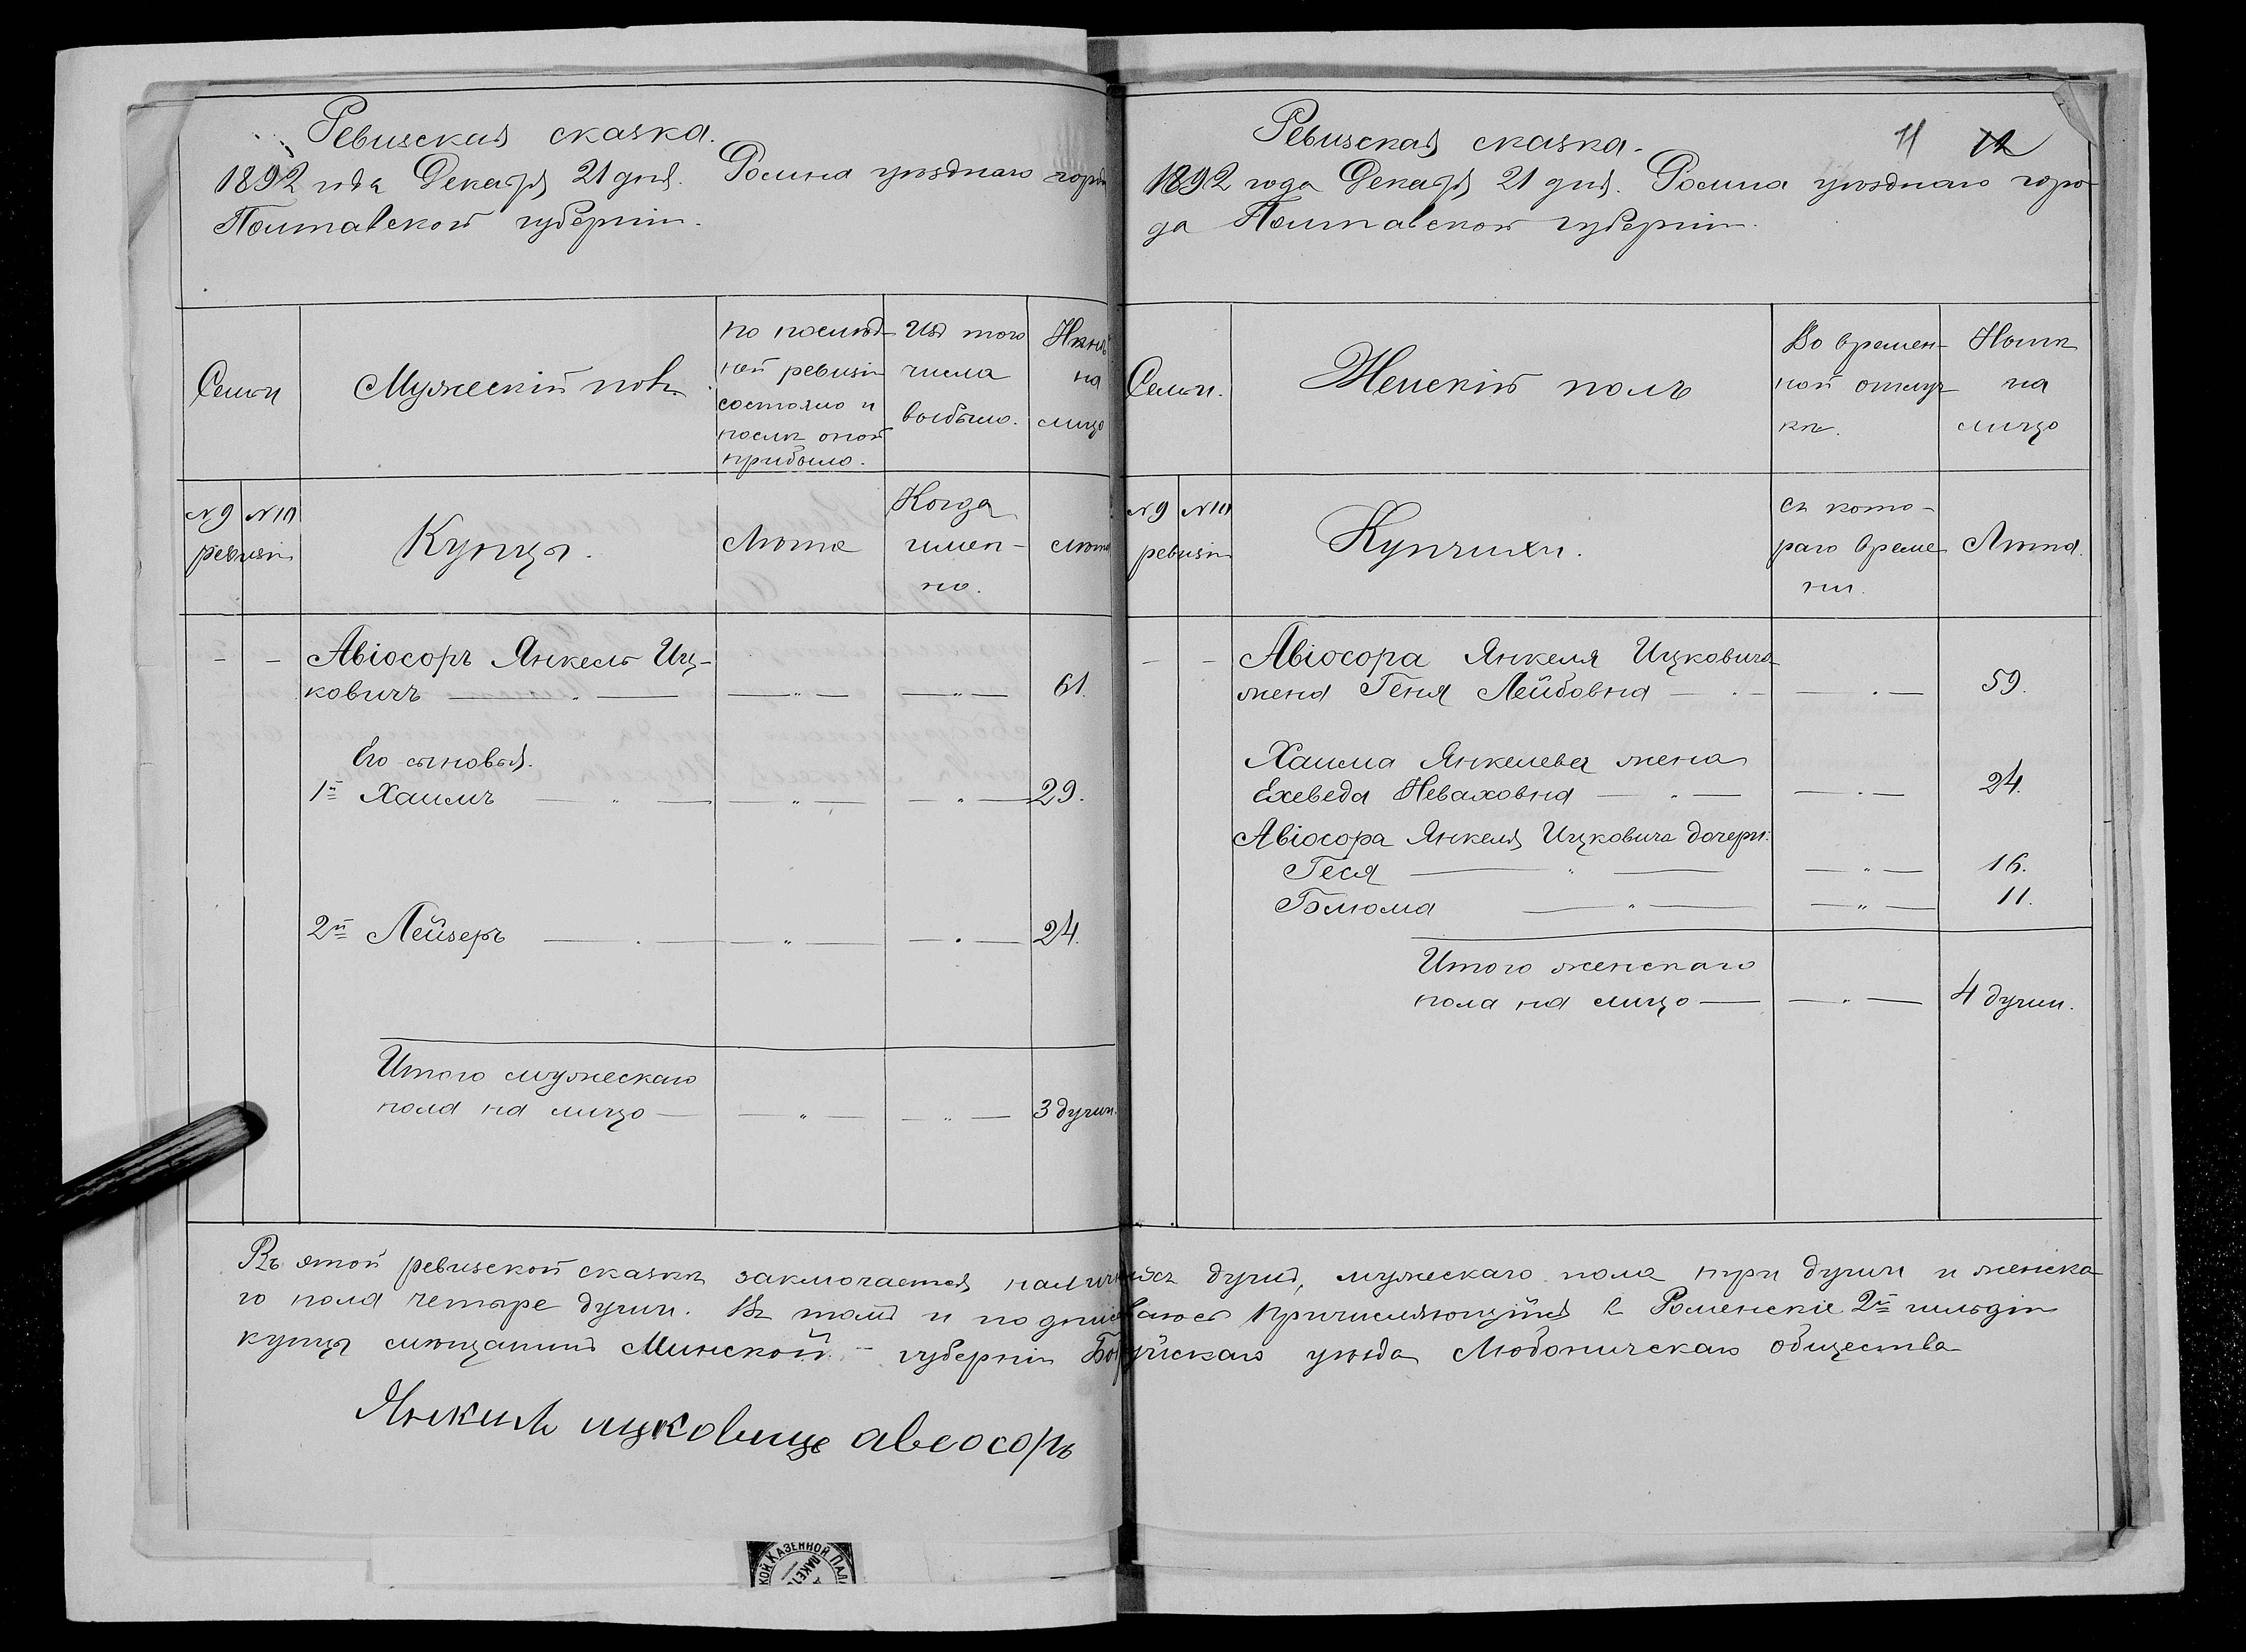 Ревизская сказка.
1892 года Декабря 21 дня. Ромна уѣзднаго города
Полтавской губерніи.
Семьи
Мужескій полъ.
по послѣд-
ней ревизіи
состояло и
послѣ оной
прибыло.
Изъ того
числа
выбыло.
Нынѣ
на
лицо
№ 9 № 10
ревизіи
Купцы.
Лѣта
Когда
имен-
но.
Лѣта
- - Авіосоръ Янкель Иц-
ковичъ — " — — " — — " — 61.
Его сыновья.
1й Хаимъ — " — — " — — " — 29.
2й Лейзеръ — " — — " — — " — 24.
Итого мужескаго
пола на лицо — — " — — " — 3 души.
Ревизская сказка.
11 12
1892 года Декабря 21 дня. Ромна уѣзднаго горо-
да Полтавской губерніи.
Семьи.
Женскій полъ
Во времен-
ной отлуч-
кѣ.
Нынѣ
на
лицо
№ 9 № 10
ревизіи
Купчихи.
Съ кото-
раго време
ни.
Лѣта.
- - Авіосора Янкеля Ицковича
жена Геня Лейбовна — " — — " — 59.
Хаима Янкелева жена
Ехеведа Неваховна — " — — " — 24.
Авіосора Янкеля Ицковича дочери:
Геся — " — — " — 16.
Блюма — " — — " — 11.
Итого женскаго
пола на лицо — — " — 4 души.
Въ этой ревизской сказкѣ заключается наличныхъ душъ, мужескаго пола три души и женска
го пола четыре души. Въ томъ и подписываюсь причисляющійся въ Роменскіе 2й гильдіи
купцы мѣщанинъ Минской - губерніи Бобруйскаго уѣзда Любоничскаго общества
Янкиль ицковице авеосоръ
КОЙ КАЗЕННОЙ ПАЛ